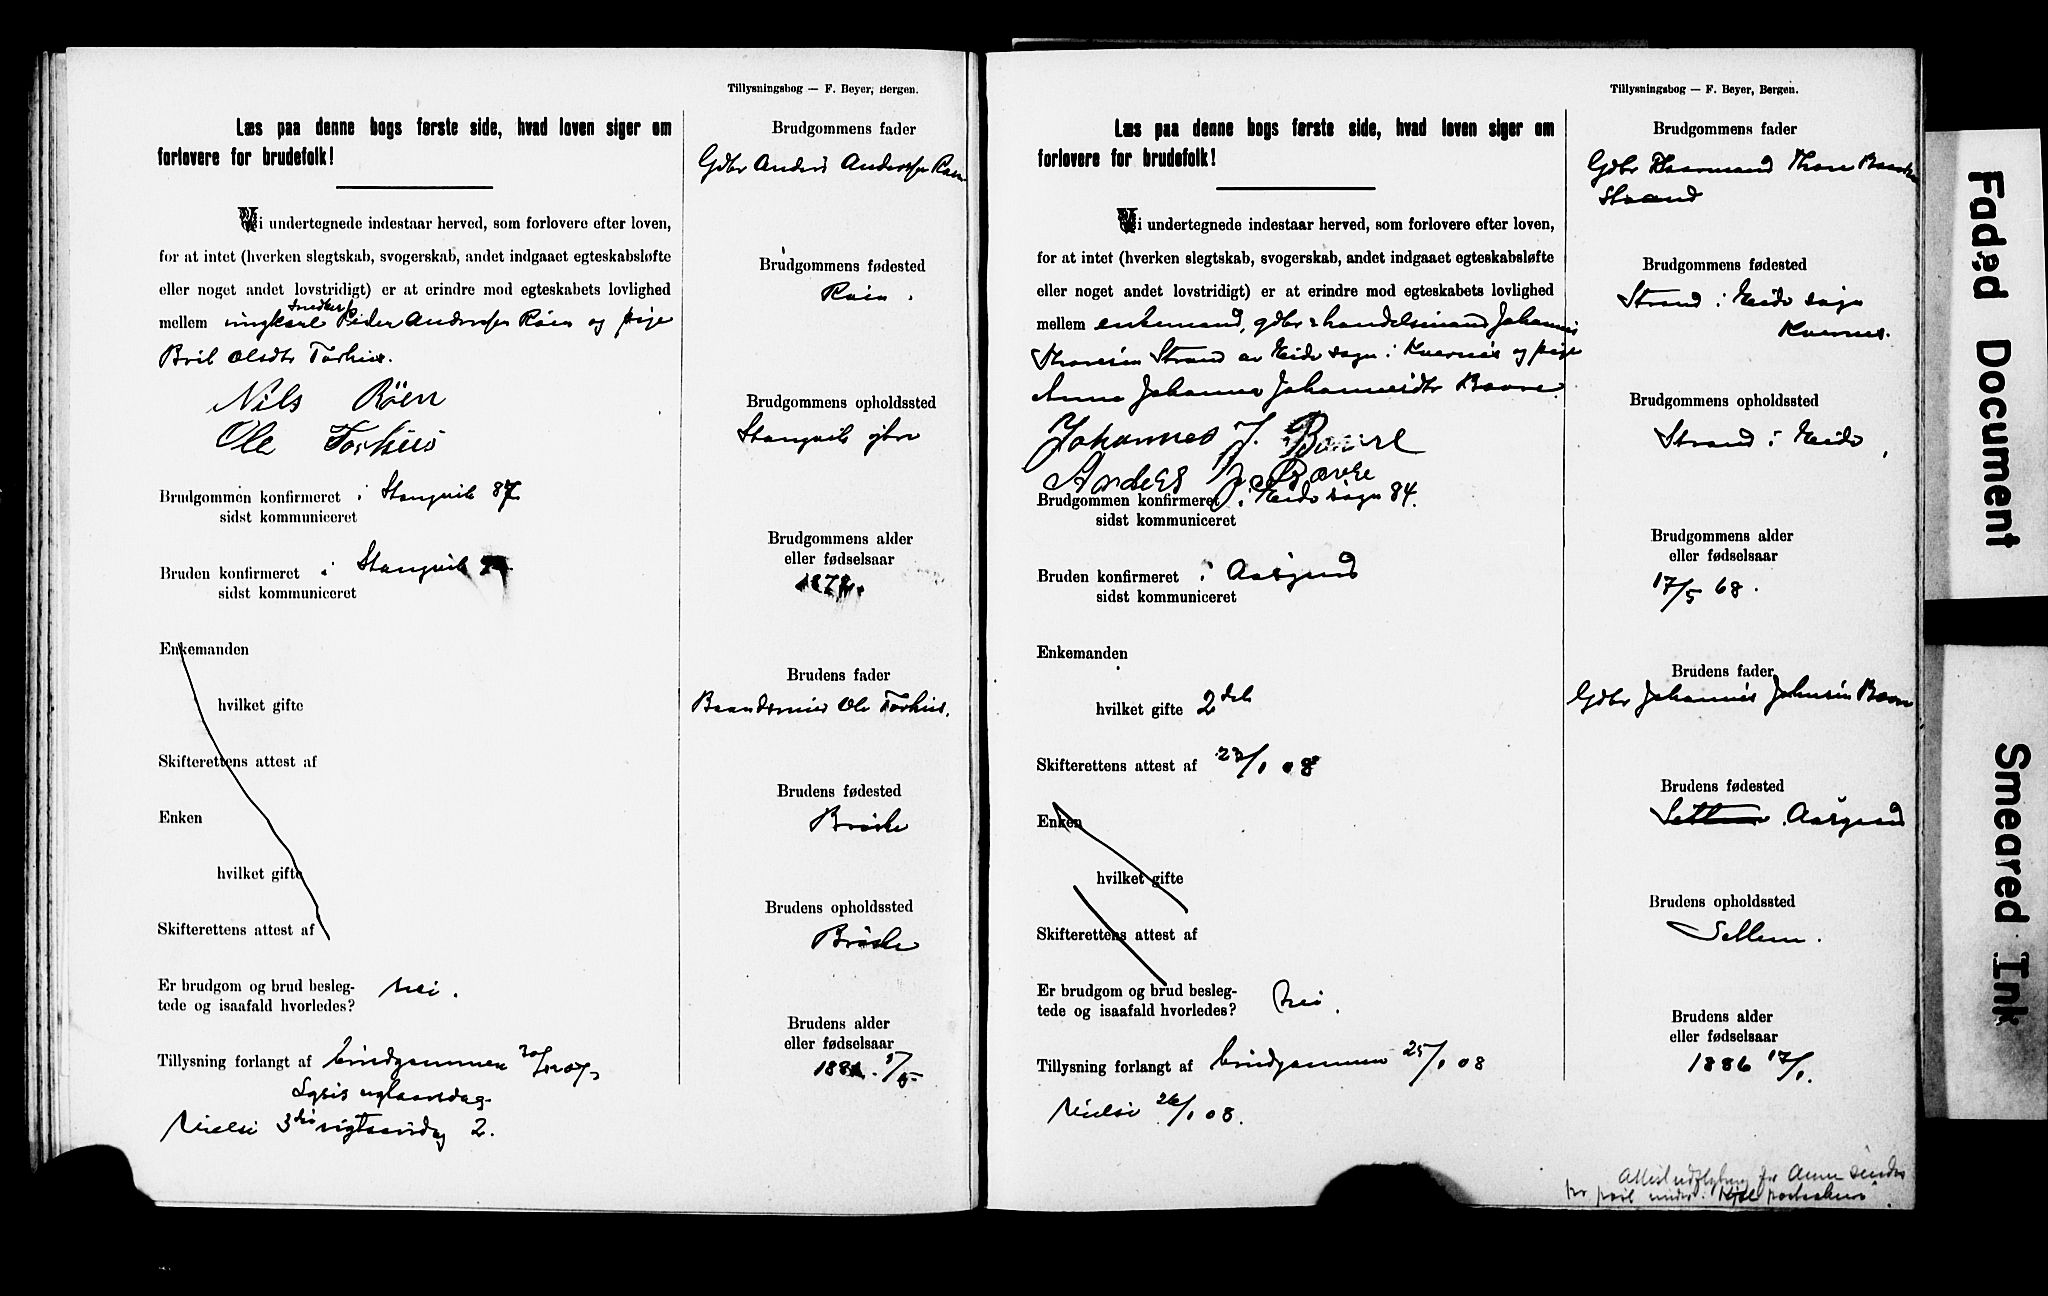 Tillysningsbog — F. Beyer, Bergen.
Læs paa denne bogs første side, hvad loven siger om
forlovere for brudefolk!
Vi undertegnede indestaar herved, som forlovere efter loven,
for at intet (hverken slegtskab, svogerskab, andet indgaaet egteskabsløfte
eller noget andet lovstridigt) er at erindre mod egteskabets lovlighed
mellem ungkarl Peder Andersen Røen og pige
Olsdtr Torhus.
Nils Røen
Ole Torhus
Brudgommen konfirmeret i Stangvik 87
sidst kommuniceret
Bruden konfirmeret i Stangvik
sidst kommuniceret
Enkemanden
hvilket gifte
Skifterettens attest af
Enken
hvilket gifte
Skifterettens attest af
Er brudgom og brud besleg-
tede og isaafald hvorledes? nei.
Tillysning forlangt af brudgommen
3die 2.
Brudgommens fader
Gdbr Anders Andersen Røen
Brudgommens fødested
Røen.
Brudgommens opholdssted
Stangvik
Brudgommens alder
eller fødselsaar
Brudens fader
Ole Torhus.
Brudens fødested
Brøske
Brudens opholdssted
Brøske
Brudens alder
eller fødselsaar
Tillysningsbog — F. Beyer, Bergen.
Læs paa denne bogs første side, hvad loven siger om
forlovere for brudefolk!
Vi undertegnede indestaar herved, som forlovere efter loven,
for at intet (hverken slegtskab, svogerskab, andet indgaaet egteskabsløfte
eller noget andet lovstridigt) er at erindre mod egteskabets lovlighed
mellem enkemand, gdbr & handelsmand Johannes
Thoresen Strand av Eide sogn i Kvernes og pige
Anne Johanna Johannesdtr Bævre.
Johannes J. Bævre
Anders J. Bævre
Brudgommen konfirmeret i Eide sogn 84.
sidst kommuniceret
Bruden konfirmeret i Aasgaard
sidst kommuniceret
Enkemanden
hvilket gifte 2det
Skifterettens attest af 23/1 08
Enken
hvilket gifte
Skifterettens attest af
Er brudgom og brud besleg-
tede og isaafald hvorledes? Nei.
Tillysning forlangt af brudgommen 25/1 08
26/1 08.
Brudgommens fader
Gdbr Thore
Strand
Brudgommens fødested
Strand i Eide sogn
Kvernes.
Brudgommens opholdssted
Strand i Eide
Brudgommens alder
eller fødselsaar
17/5 68.
Brudens fader
Gdbr Johannes Johnsen Bævre
Brudens fødested
Aasgaard
Brudens opholdssted
Settem.
Brudens alder
eller fødselsaar
1886 17/1.
for Anne sendes
Faded Document
Smeared Ink